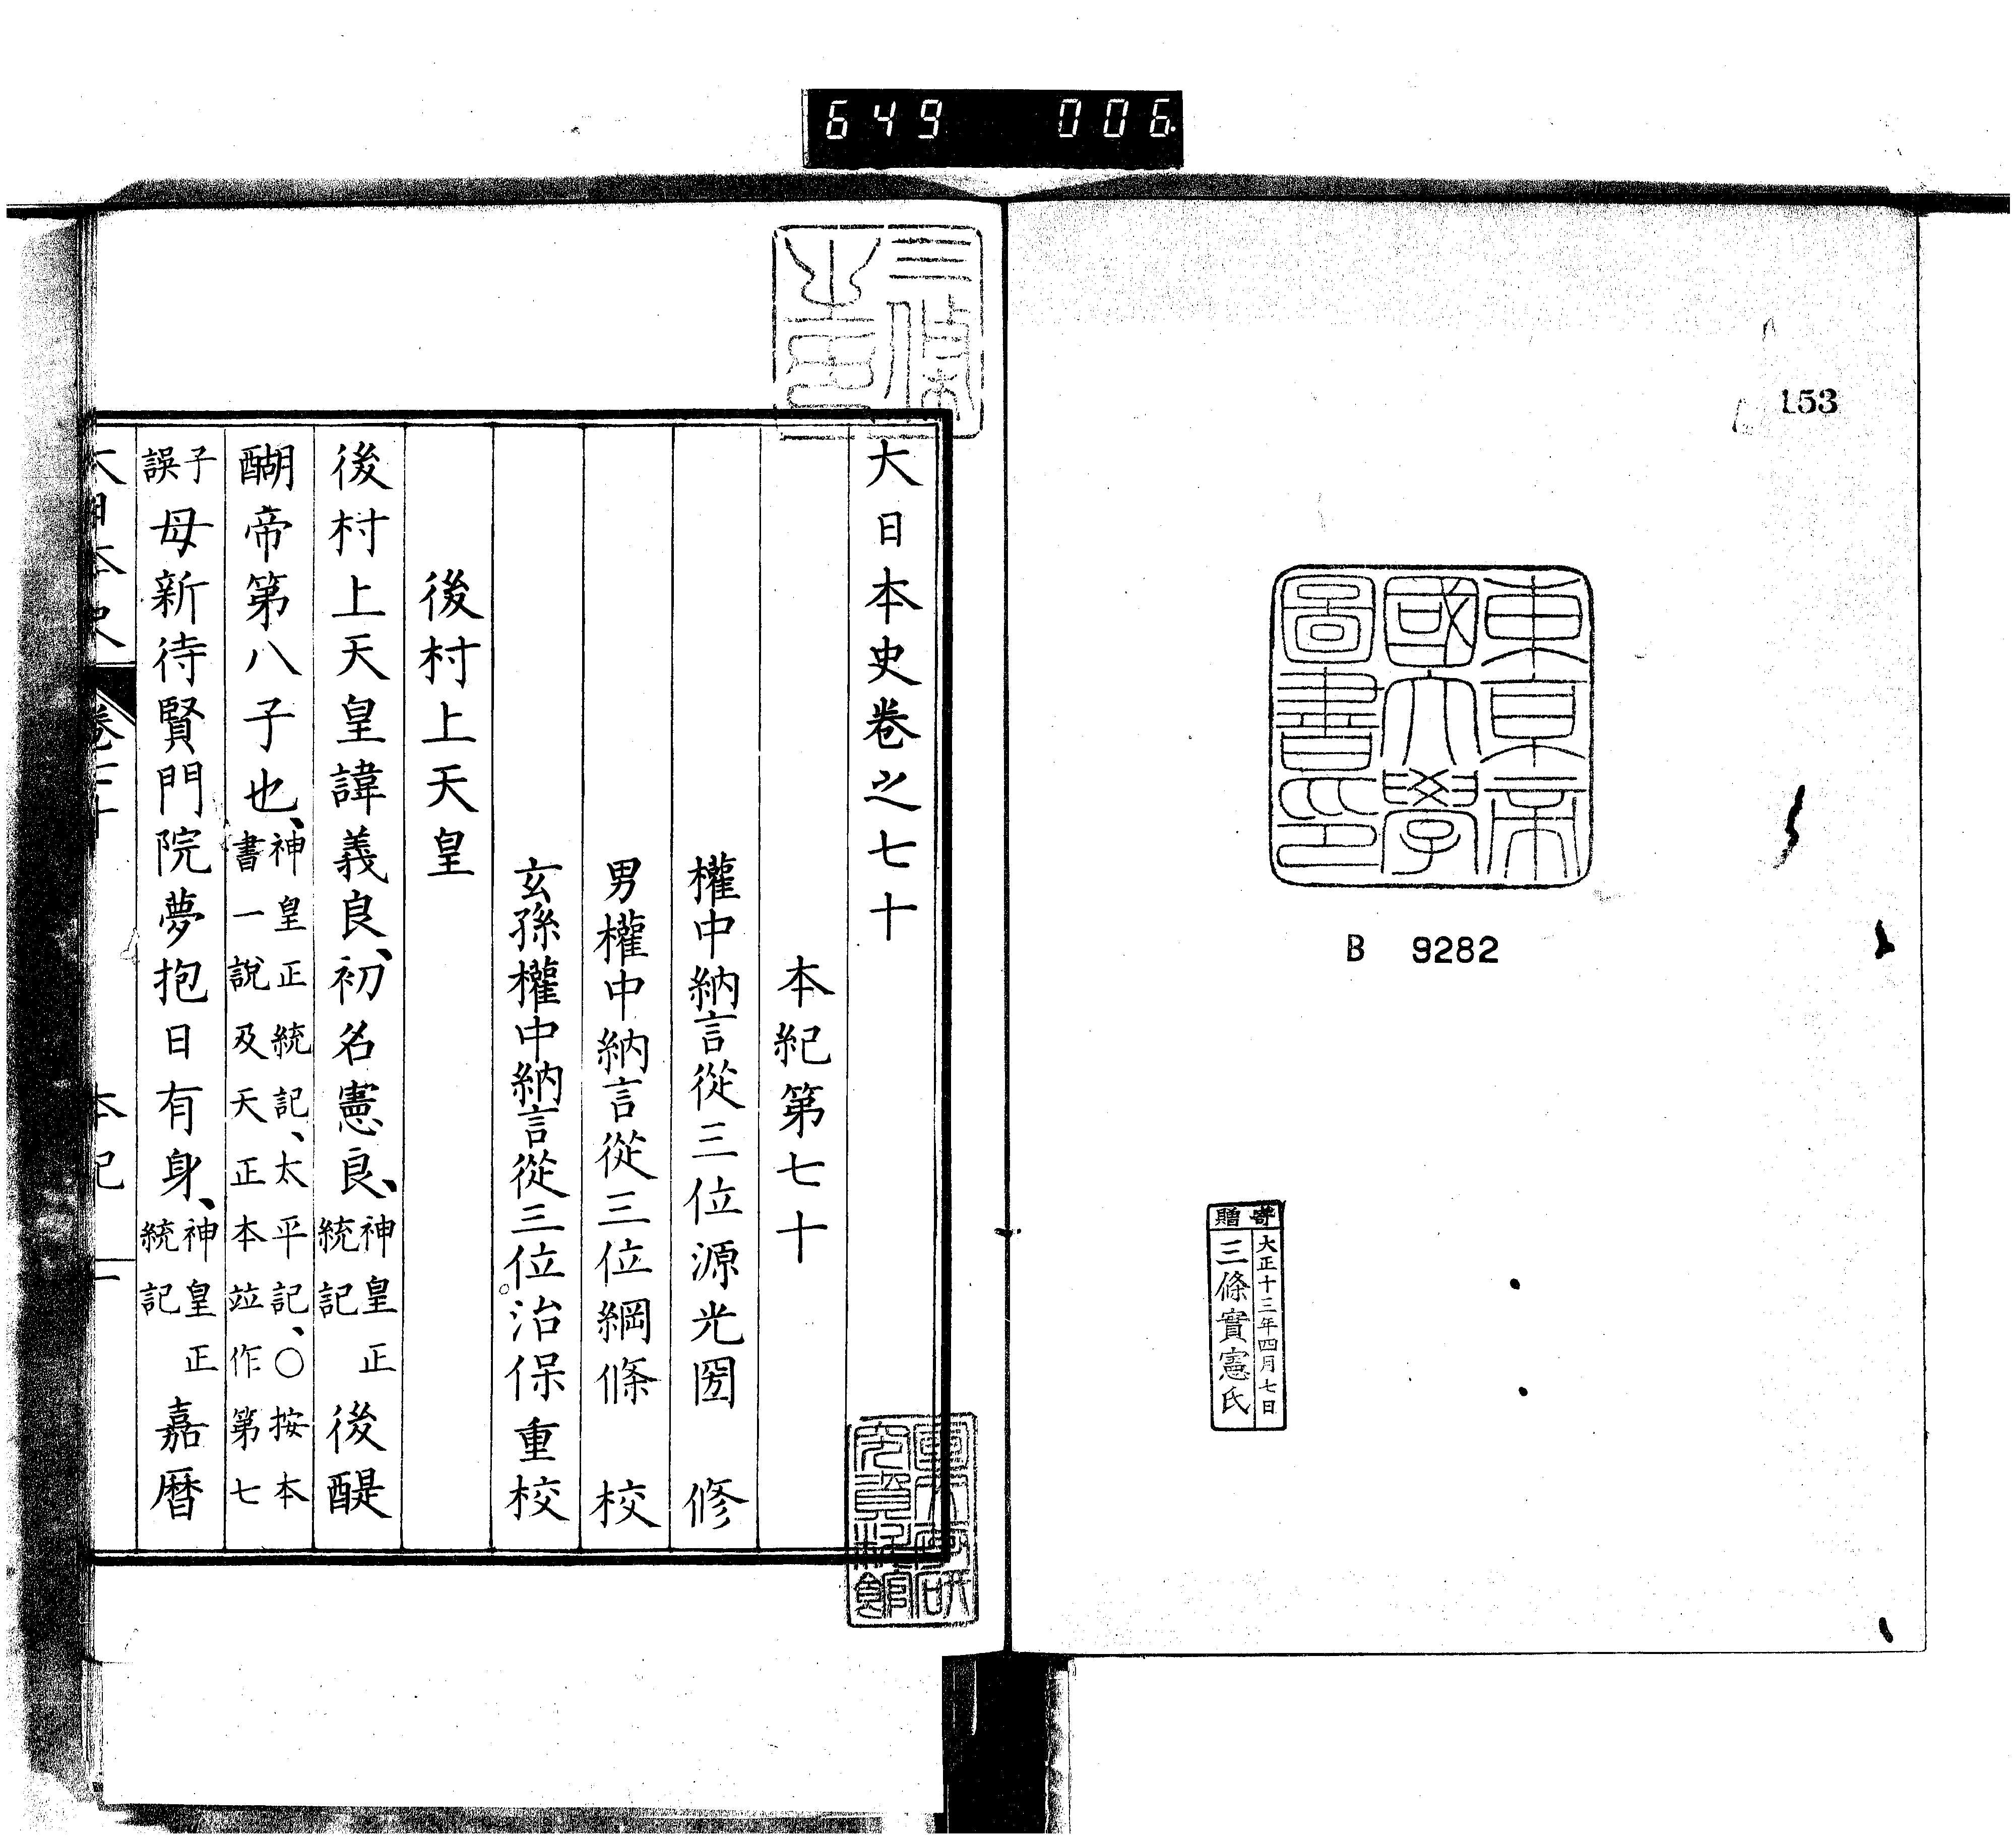 649 006
153
東京帝
國大學
圖書印
B 9282
寄贈
大正十三年四月七日
三條實憲氏
三條
大日本史卷之七十
本紀第七十
權中納言從三位源光圀 修
男權中納言從三位綱條 校
玄孫權中納言從三位治保重校
後村上天皇
後村上天皇諱義良、初名憲良、神皇正統記後醍
醐帝第八子也、神皇正統記、太平記、○按本書一說及天正本竝作第七
子誤母新待賢門院夢抱日有身、神皇正統記嘉曆
大日本史 卷七十 本紀 一